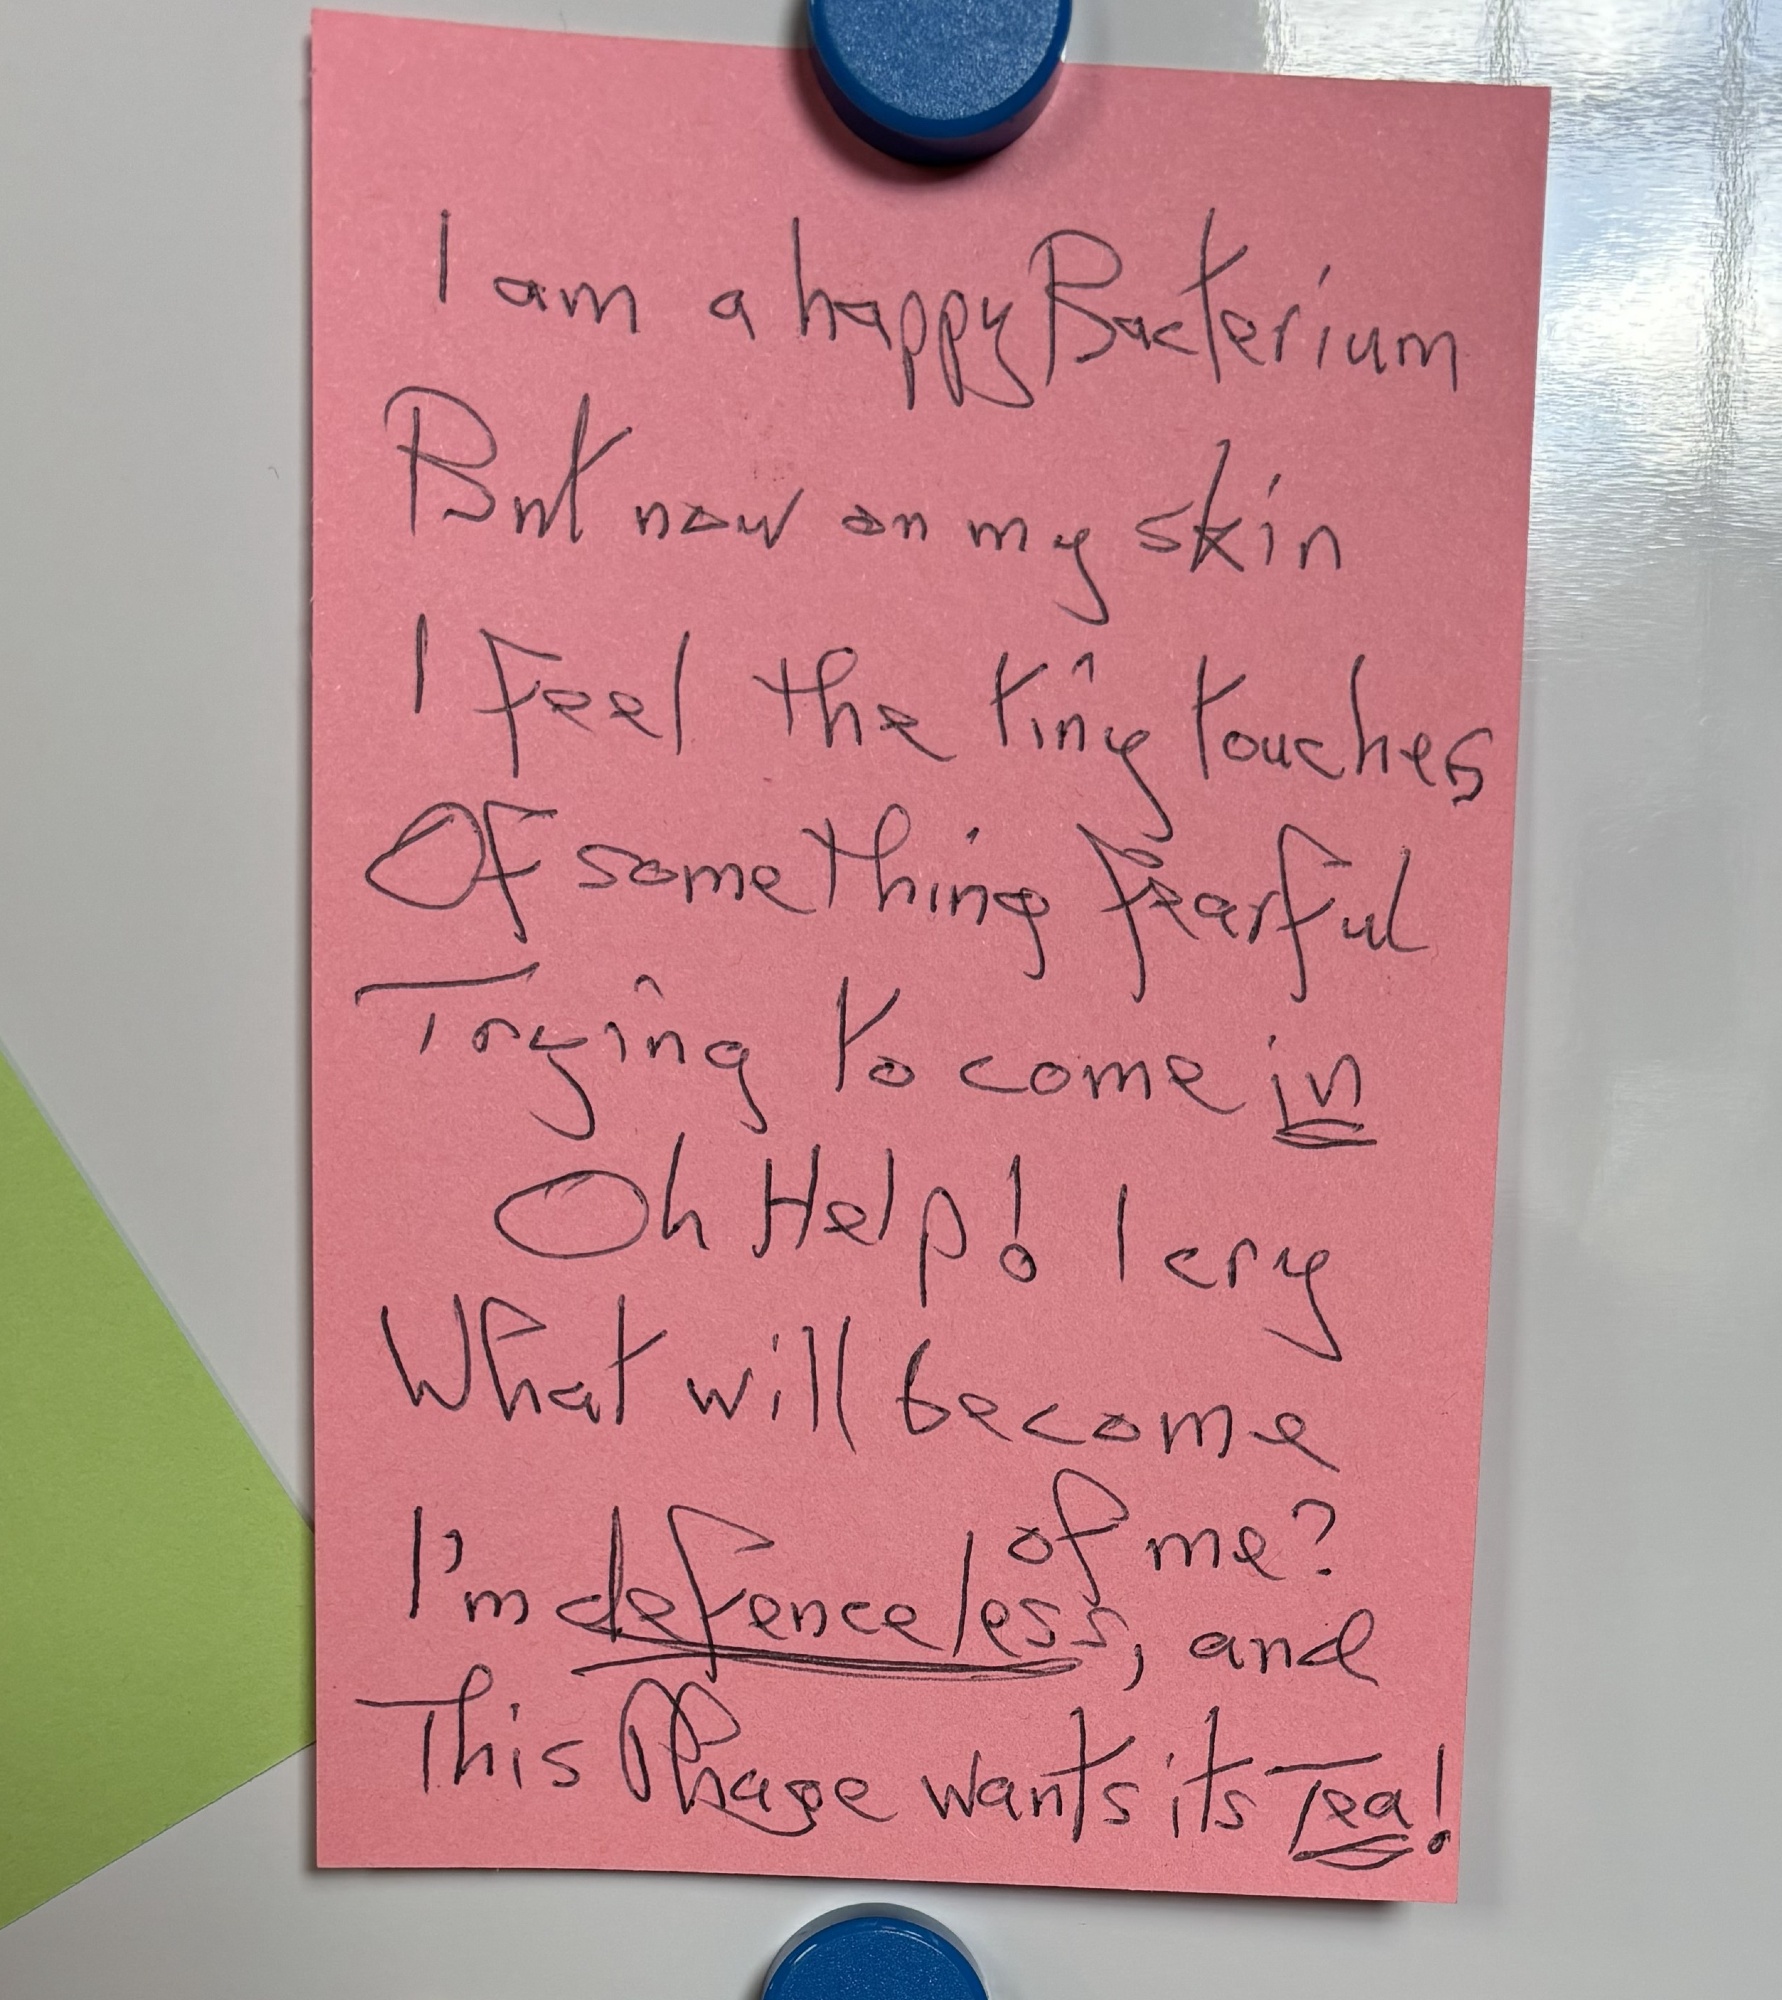 I am a happy Bacterium
But now on my skin
I feel the tiny touches
Of something fearful
Trying to come in
Oh Help! I cry
What will become
of me?
I'm defenceless, and
This Phage wants its Tea!